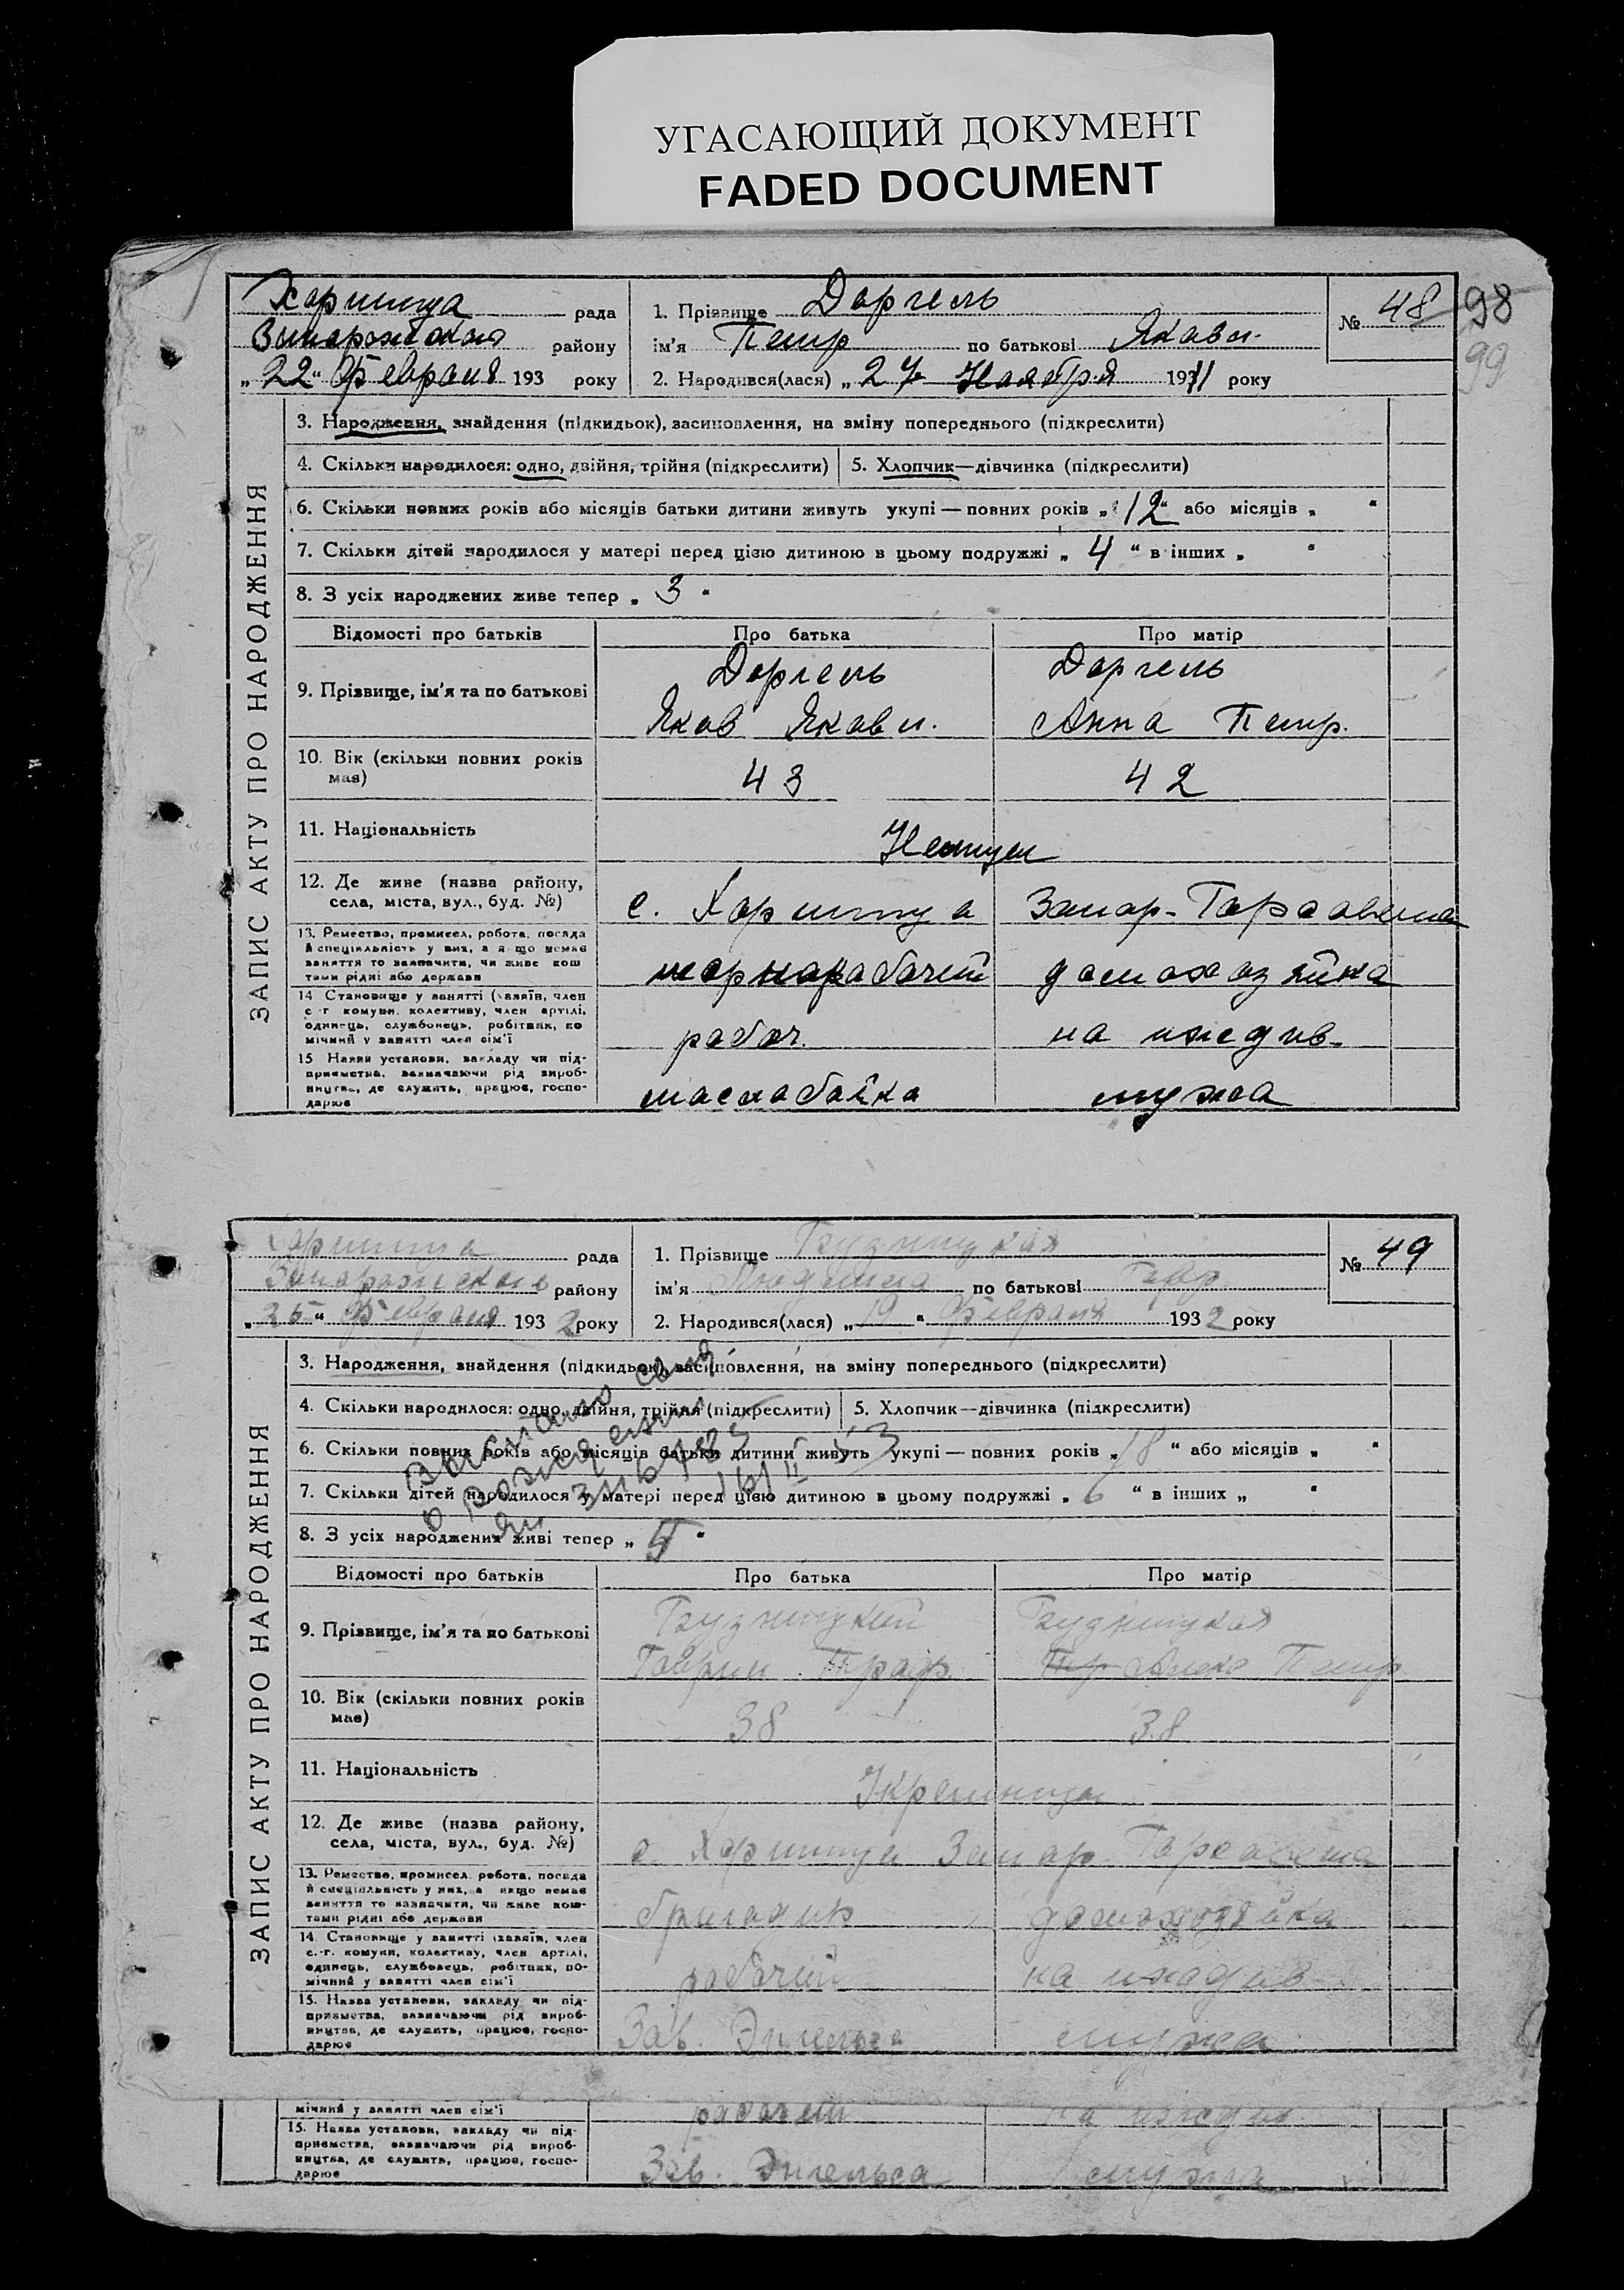 УГАСАЮЩИЙ ДОКУМЕНТ
FADED DOCUMENT
98
99
ЗАПИС АКТУ ПРО НАРОДЖЕННЯ
Хортица рада
району
„22" Февраля 193 року
1. Прізвище Доргель
ім'я Петр по батькові Якови.
2. Народився(лася) „27 Ноября 1931 року
№ 48
3. Народження, знайдення (підкидьок), засиновлення, на зміну попереднього (підкреслити)
4. Скільки народилося: одно, двійня, трійня (підкреслити) 5. Хлопчик—дівчинка (підкреслити)
6. Скільки повних років або місяців батьки дитини живуть укупі — повних років „12" або місяців „ "
7. Скільки дітей народилося у матері перед цією дитиною в цьому подружжі „ 4 " в інших „ "
8. З усіх народжених живе тепер „ 3 "
Відомості про батьків Про батька Про матір
9. Прізвище, ім'я та по батькові Доргель Яков Якови. Доргель Анна Петр.
10. Вік (скільки повних років має) 43 42
11. Національність Немцы
12. Де живе (назва району, села, міста, вул., буд. №) с. Хортица Запор-
13. Ремество, промисел, робота, посада й спеціяльність у них, а якщо немає заняття то зазначити, чи живе коштами рідні або держави чернорабочий домохозяйка
14 Становище у занятті (хазяїн, член с.-г комуни, колективу, член артілі, одинець, службовець, робітник, помічний у занятті член сім'ї рабоч. на иждив.
15 Назва установи, закладу чи підприємства, зазначаючи рід виробництва, де служить, працює, господарює маслобойка мужа
ЗАПИС АКТУ ПРО НАРОДЖЕННЯ
Хортица рада
району
„25" Февраля 1932 року
1. Прізвище
ім'я по батькові Гавр.
2. Народився(лася) „19" Февраля 1932 року
№ 49
3. Народження, знайдення (підкидьок), засиновлення, на зміну попереднього (підкреслити)
4. Скільки народилося: одно, двійня, трійня (підкреслити) 5. Хлопчик—дівчинка (підкреслити)
6. Скільки повних років або місяців батьки дитини живуть укупі — повних років „18" або місяців „ "
7. Скільки дітей народилося у матері перед цією дитиною в цьому подружжі „ 6 " в інших „ "
8. З усіх народжених живі тепер „ 5 "
Відомості про батьків Про батька Про матір
9. Прізвище, ім'я та по батькові Петр
10. Вік (скільки повних років має) 38 38
11. Національність Украинцы
12. Де живе (назва району, села, міста, вул., буд. №) с. Хортица Запор.
13. Ремество, промисел, робота, посада й спеціяльність у них, а якщо немає заняття то зазначити, чи живе коштами рідні або держави бригадир домохозяйка
14. Становище у занятті (хазяїн, член с.-г. комуни, колективу, член артілі, одинець, службовець, робітник, помічний у занятті член сім'ї рабочий на иждив
15. Назва установи, закладу чи підприємства, зазначаючи рід виробництва, де служить, працює, господарює Зав. Энгельса мужа
мічний у занятті член сім'ї рабочий на иждив
15. Назва установи, закладу чи підприємства, зазначаючи рід виробництва, де служить, працює, господарює Зав. Энгельса мужа